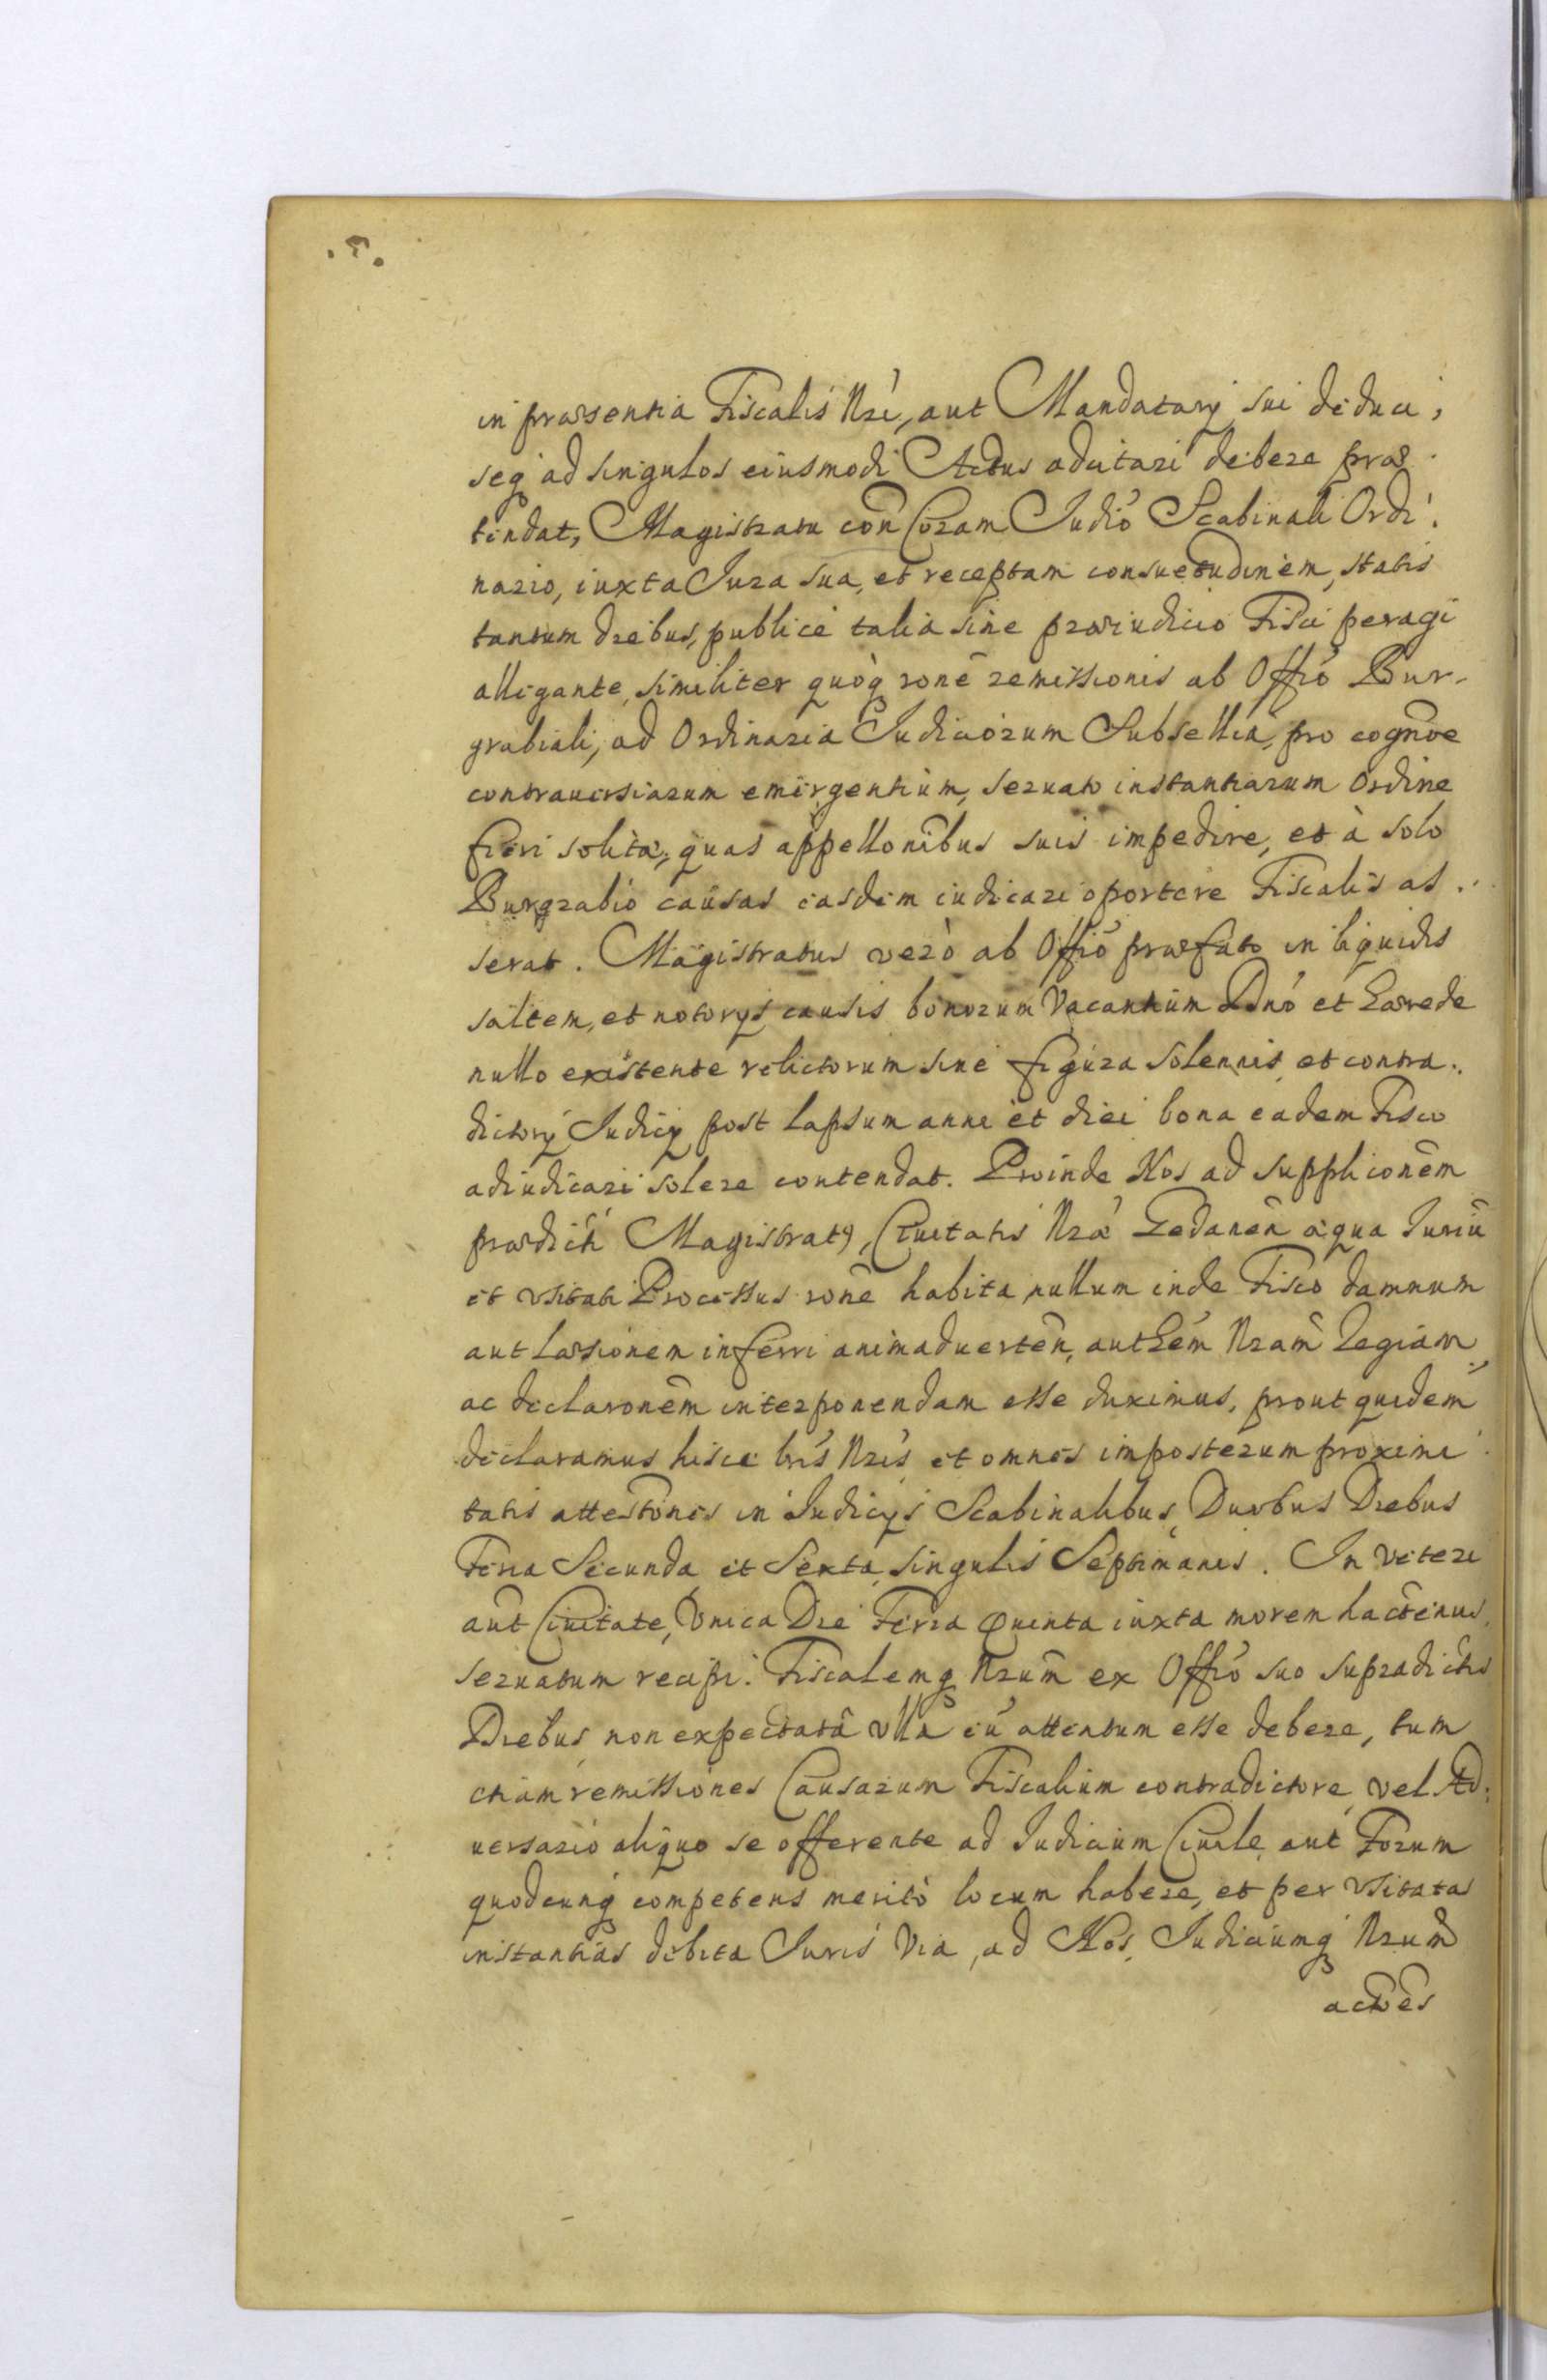 in præsentia Fiscalis Nri, aut Mandatarij sui deduci,
seq́ ad singulos eiusmodi Actus adcitari debere præ-
tendat, Magistratu con̄ Coram Judió Scabinali Ordi-
nario, iuxta Jura sua, et receptam consuetudinem, statis
tantum diebus, publice talia sine præiudicio Fisci peragi
allegante, similiter quòq́ rone̅ remissionis ab Offió Bur-
grabiali, ad Ordinaria Judiciorum Subsellia, pro cogn̄oe
contrauersiarum emergentium, seruato instantiarum Ordine
fieri solitæ, quas appellon̄ibus suis impedire, et à solo
Burgrabió causas easdem iudicari oportere Fiscalis as-
serat. Magistratus verò ab Offió præfato in liquidis
saltem, et notorijs causis bonorum Vacantium Dn̄ó et Hærede
nullo existente relictorum sine figura solennis et contra-
dictorij Judicij post lapsum anni et diei bona eadem Fisco
adiudicari solere contendat. Proinde Nos ad supplicon̄em
prædicti Magistratꝰ, Ciuitatis Nræ Gedanen̄ æqua Juriū
et vsitati Processus rone̅ habita nullum inde Fisco damnum
aut læsionem inferri animaduerten̄, authém Nram̄ Regiam
ac declaronēm interponendam esse duximus, prout quidem
declaramus hisce lrís Nrís et omnes imposterum proximi-
tatis attestōnes in Judicijs Scabinalibus, Duobus Diebus
Feria Secunda et Sexta, singulis Septimanis. In Veteri
aut̄ Ciuitate, Vnica Die Feria Quinta iuxta morem hactenus
seruatum recipi. Fiscalemq́ Nrum̄ ex Offió suo supradictis
Diebus non expectatâ vllâ cit̄ attentum esse debere, tum
etiam remissiones Causarum Fiscalium contradictore vel Ad-
uersario aliquo se offerente ad Judicium Ciuile aut Forum
quodcunq́ competens meritò locum habere, et per vsitatas
instantias debita Juris via, ad Nos, Judiciumq́ Nrum̄
actōēs